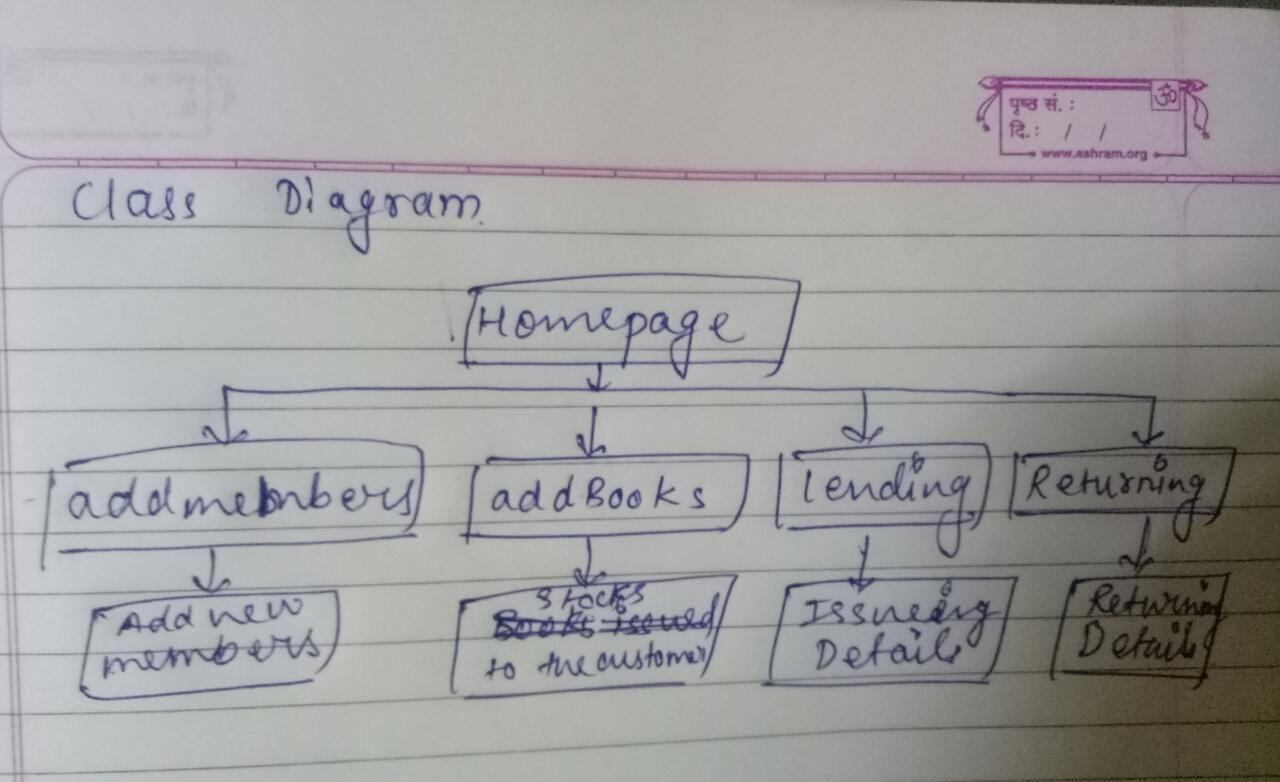 पृष्ठ सं. :
ॐ
दि.: / /
www.ashram.org
Class Diagram
Homepage
addmembers
addBooks
lending
Returning
Add new
members
Stocks
Books issued
to the customer
Issueing
Details
Returning
Details